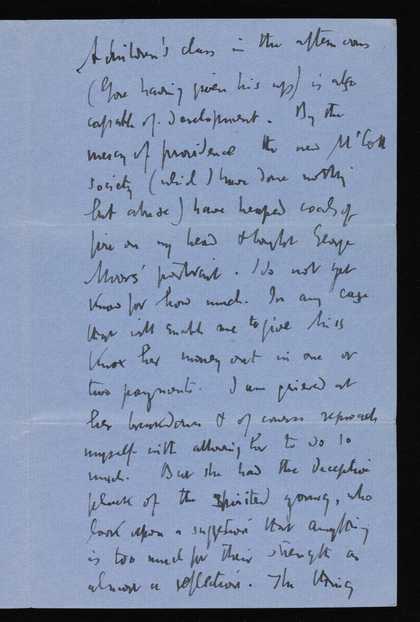 A children's class in the afternoons
(Gore having given his up) is also
capable of development. By the
mercy of providence the new McColl
society (which I have done nothing
but abuse) have heaped coals of
fire on my head & bought George
Moore's portrait. I do not yet
know for how much. In any case
that will enable me to give Miss
Knox her money out in one or
two payments. I am grieved at
her breakdown & of course reproach
myself with allowing her to do so
much. But she had the deceptive
pluck of the spirited young, who
look upon a suggestion that anything
is too much for their strength as
almost a reflection. The